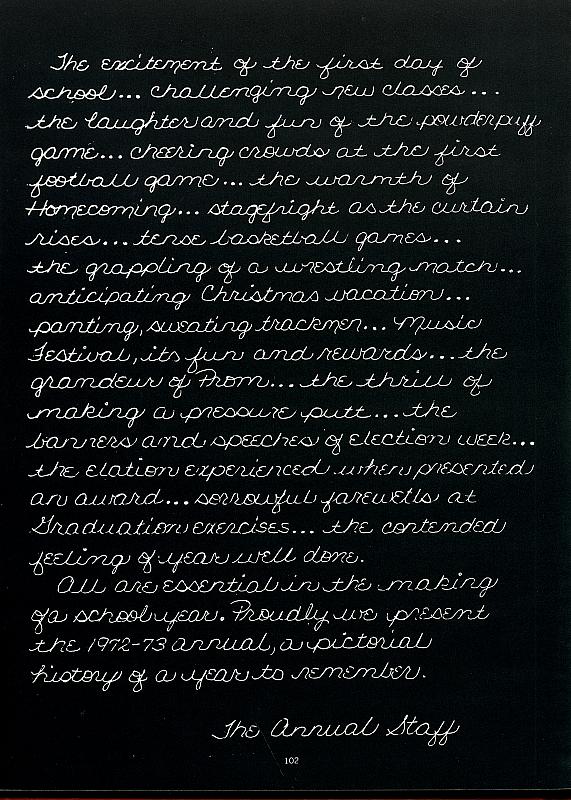 The excitement of the first day of
school... challenging new classes...
the laughter and fun of the powderpuff
game... cheering crowds at the first
football game... the warmth of
Homecoming... stagefright as the curtain
rises... tense basketball games...
the grappling of a wrestling match...
anticipating Christmas vacation...
panting, sweating trackmen... Music
Festival, its fun and rewards... the
grandeur of Prom... the thrill of
making a pressure putt... the
banners and speeches of election week...
the elation experienced when presented
an award... sorrowful farewells at
Graduation exercises... the contended
feeling of year well done.
All are essential in the making
of a school year. Proudly we present
the 1972-73 annual, a pictorial
history of a year to remember.
The Annual Staff
102